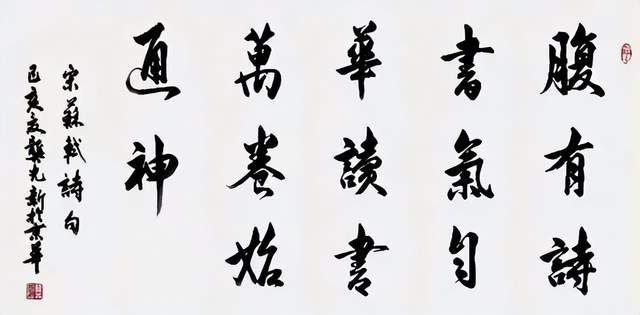 腹有詩
書氣自
華讀書
萬卷始
通神
宋蘇軾詩句
己亥夏龔光新於京華